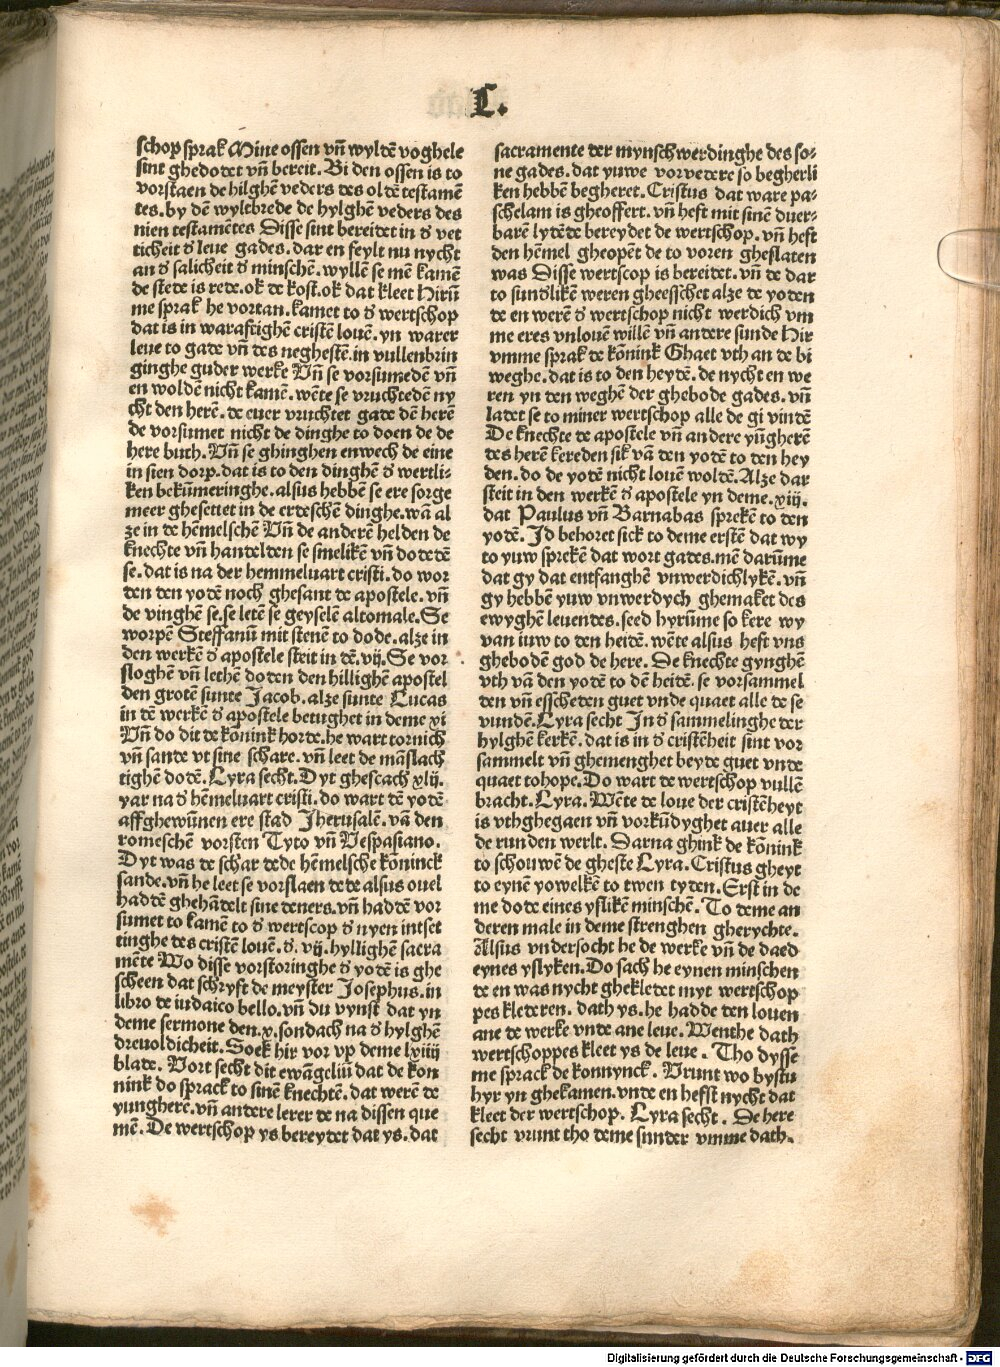 L.
schop sprak Mine ossen vn̄ wyldē voghele
sint ghedodet vn̄ bereit. Bi den ossen is to
vorstaen de hilghē veders des oldē testamē
tes. by dē wyltbrede de hylghē veders des
nien testamētes Disse sint bereidet in đ vet
ticheit đ leue gades. dar en feylt nu nycht
an đ salicheit đ minschē. wyllē se mē kamē
de stede is rede. ok de kost. ok dat kleet Hirū
me sprak he vortan. kamet to đ wertschop
dat is in waraftighē cristē louē. yn warer
leue to gade vn̄ des neghestē. in vullenbrin
ginghe guder werke Vn̄ se vorsumedē vn̄
en woldē nicht kamē. wēte se vruchtedē ny
cht den herē. de euer vruchtet gade dē herē
de vorsumet nicht de dinghe to doen de de
here buth. Vn̄ se ghinghen enwech de eine
in sien dorp. dat is to den dinghē đ wertli-
ken bekūmeringhe. alsus hebbē se ere sorge
meer ghesettet in de erdeschē dinghe. wā al
ze in de hēmelschē Vn̄ de anderē helden de
knechte vn̄ handelden se smelikē vn̄ dodedē
se. dat is na der hemmeluart cristi. do wor
den den yodē noch ghesant de apostele. vn̄
de vinghē se. se letē se geyselē altomale. Se
worpē Steffanū mit stenē to dode. alze in
den werkē đ apostele steit in dē. vij. Se vor
sloghē vn̄ lethē doden den hillighē apostel
den grotē sunte Jacob. alze sunte Lucas
in dē werkē đ apostele betughet in deme xi
Vn̄ do dit de konink horde. he wart tornich
vn̄ sande vt sine schare. vn̄ leet de māslach
tighē dodē. Lyra secht. Dyt ghescach xlij.
yar na đ hēmeluart cristi. do wart dē yodē
affghewūnen ere stad Jherusalē. vā den
romeschē vorsten Tyto vn̄ Vespasiano.
Dyt was de schar dede hēmelsche koninck
sande. vn̄ he leet se vorslaen dede alsus ouel
haddē ghehādelt sine deners. vn̄ haddē vor
sumet to kamē to đ wertscop đ nyen intset
tinghe des cristē louē. đ. vij. hyllighē sacra
mēte Wo disse vorstoringhe đ yodē is ghe
scheen dat schryft de meyster Josephus. in
libro de iudaico bello. vn̄ du vynst dat yn
deme sermone den. x. sondach na đ hylghē
dreuoldicheit. Soek hir vor vp deme lxiiij
blade. Vort secht dit ewāgeliū dat de kon
nink do sprack to sinē knechtē. dat werē de
yunghere. vn̄ andere lerer de na dissen que
mē. De wertschop ys bereydet dat ys. dat
sacramente der mynschwerdinghe des so-
ne gades. dat yuwe vorvedere so begherli
ken hebbē begheret. Cristus dat ware pa-
schelam is gheoffert. vn̄ heft mit sinē duer-
barē lydēde bereydet de wertschop. vn̄ heft
den hēmel gheopēt de to voren gheslaten
was Disse wertscop is bereidet. vn̄ de dar
to sunđlikē weren gheesschet alze de yoden
de en werē đ wertschop nicht werdich vm
me eres vnlouē willē vn̄ andere sunde Hir
vmme sprak de konink Ghaet vth an de bi
weghe. dat is to den heydē. de nycht en we
ren yn den weghē der ghebode gades. vn̄
ladet se to miner wertschop alle de gi vindē
De knechte de apostele vn̄ andere yūgherē
des herē kereden sik vā den yodē to den hey
den. do de yodē nicht louē woldē. Alze dar
steit in den werkē đ apostele yn deme. xiij.
dat Paulus vn̄ Barnabas sprekē to den
yodē. Jd behoret sick to deme erstē dat wy
to yuw sprekē dat wort gades. mē darūme
dat gy dat entfanghē vnwerdichlykē. vn̄
gy hebbē yuw vnwerdych ghemaket des
ewyghē leuendes. seed hyrūme so kere wy
van iuw to den heidē. wēte alsus heft vns
ghebodē god de here. De knechte gynghē
vth vā den yodē to dē heidē. se vorsammel
den vn̄ esscheden guet vnde quaet alle de se
vundē. Lyra secht Jn đ sammelinghe der
hylghē kerkē. dat is in đ cristēheit sint vor
sammelt vn̄ ghemenghet beyde guet vnde
quaet tohope. Do wart de wertschop vullē
bracht. Lyra. Wēte de loue der cristēheyt
is vthghegaen vn̄ vorkūdyghet auer alle
de runden werlt. Darna ghink de konink
to schouwē de gheste Lyra. Cristus gheyt
to eynē yowelkē to twen tyden. Erst in de
me dode eines yslikē minschē. To deme an
deren male in deme strenghen gherychte.
Alsus vndersocht he de werke vn̄ de daed
eynes yslyken. Do sach he eynen minschen
de en was nycht ghekledet myt wertschop
pes klederen. dath ys. he hadde den louen
ane de werke vnde ane leue. Wenthe dath
wertschoppes kleet ys de leue. Tho dysse
me sprack de konnynck. Vrunt wo bystu
hyr yn ghekamen. vnde en hefst nycht dat
kleet der wertschop. Lyra secht. De here
secht vrunt tho deme sunder vmme dath.
Digitalisierung gefördert durch die Deutsche Forschungsgemeinschaft - DFG